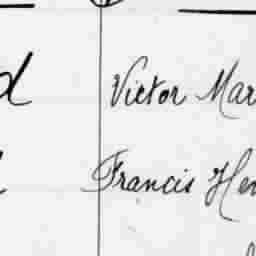 d Victor Mar
Francis Hen